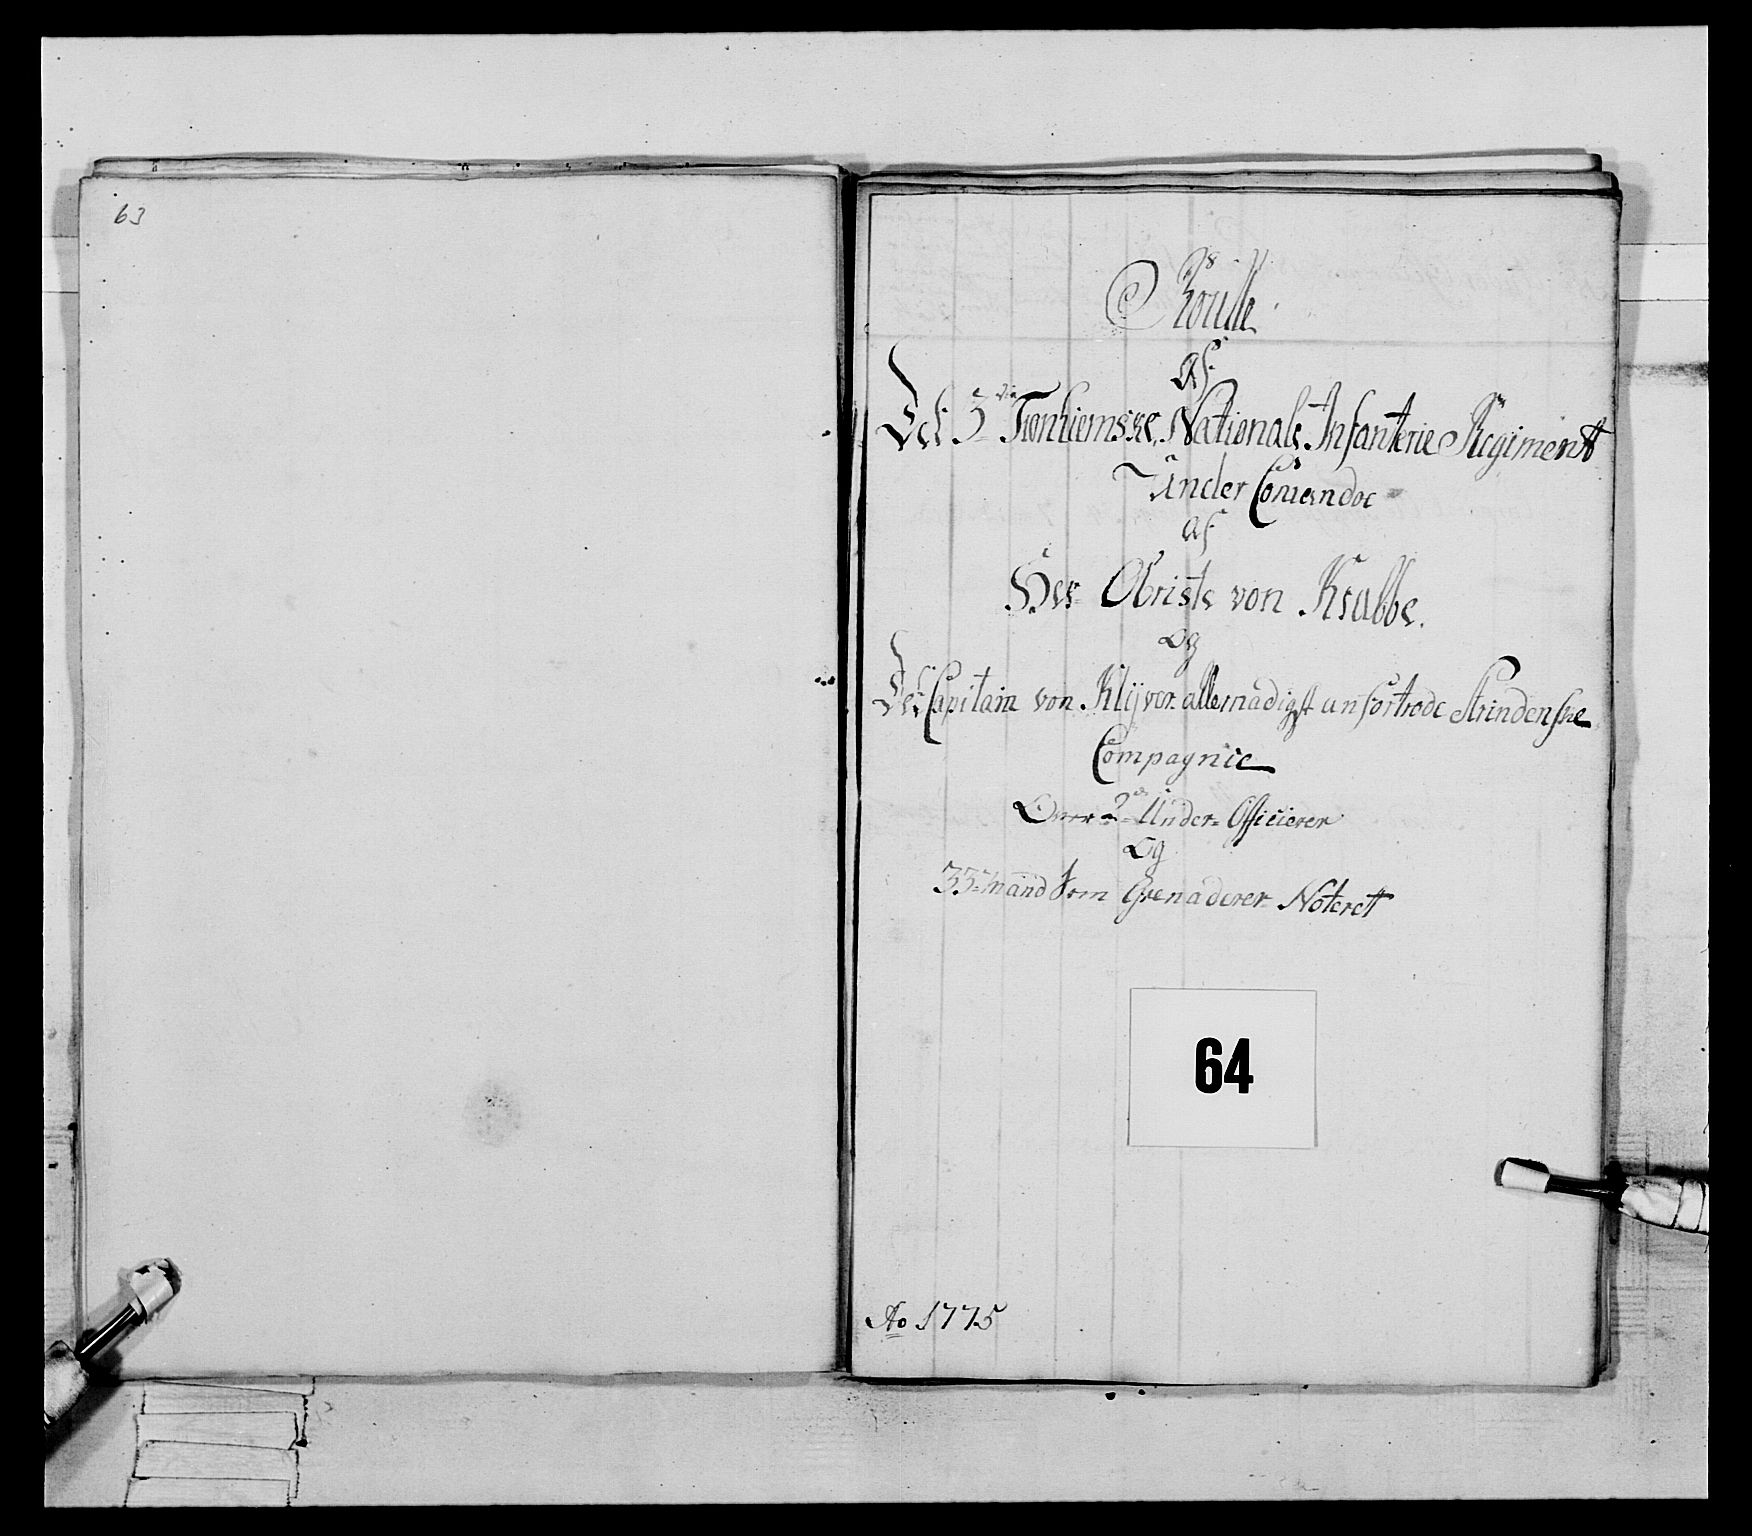 63
Roulle
af
Det 3die Tronhiemske Nationale Infanterie Regiment
Under Comandoe
af
Her Obriste von Krabbe.
og
Det Capitain von Klÿver allernadigst anfortrode Strindenske
Compagnie
Over 2de Under-Officierer
Og
33 Mand Som Grenaderer Noterett
64
Ao 1775